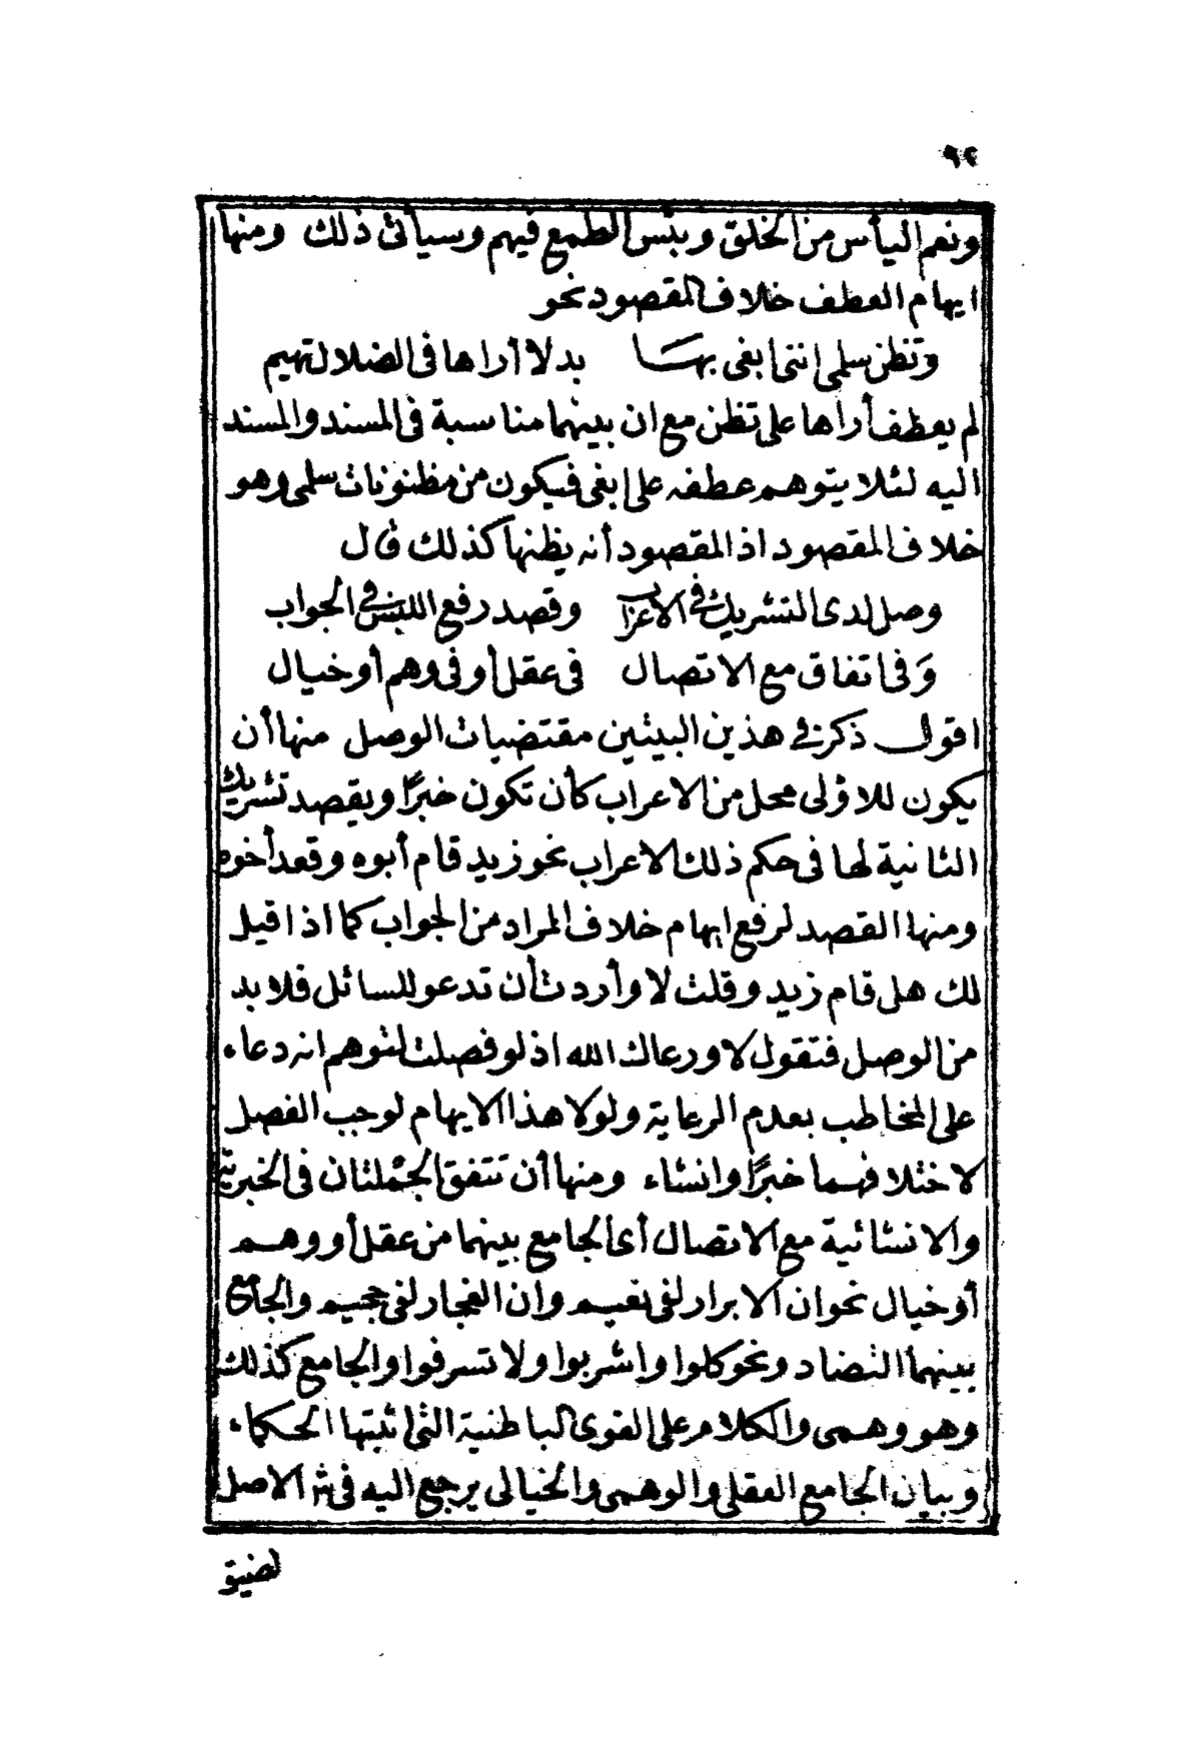 ٩٢
ونعم اليأس من الخلق وبئس الطمع فيهم وسيأتى ذلك ومنها
ايهام العطف خلاف المقصود نحو
وتظن سلمى اننى ابغى بها بدلا أراها فى الضلال تهيم
لم يعطف أراها على تظن مع ان بينهما مناسبة فى المسند والمسند
اليه لئلا يتوهم عطفه على ابغى فيكون من مظنونات سلمى وهو
خلاف المقصود اذ المقصود أنه يظنها كذلك قال
وصل لدى التشريك فى الاعراب وقصد رفع اللبس فى الجواب
وَفى اتفاق مع الاتصال فى عقل أو فى وهم أو خيال
اقول ذكر فى هذين البيتين مقتضيات الوصل منها أن
يكون للاولى محل من الاعراب كأن تكون خبرًا ويقصد تشريك
الثانية لها فى حكم ذلك الاعراب نحو زيد قام أبوه وقعد أخوه
ومنها القصد لرفع ايهام خلاف المراد من الجواب كما اذا قيل
لك هل قام زيد وقلت لا وأردت أن تدعو للسائل فلا بد
من الوصل فتقول لا ورعاك الله اذ لو فصلت لتوهم انه دعاء
على المخاطب بعدم الرعاية ولولا هذا الايهام لوجب الفصل
لاختلافهما خبرًا وانشاء ومنها أن تتفق الجملتان فى الخبرية
والانشائية مع الاتصال أى الجامع بينهما من عقل أو وهم
أو خيال نحو ان الابرار لفى نعيم وان الفجار لفى جحيم والجامع
بينهما التضاد ونحو كلوا واشربوا ولا تسرفوا والجامع كذلك
وهو وهمى والكلام على القوى الباطنية التى اثبتها الحكماء
وبيان الجامع العقلى والوهمى والخيالى يرجع اليه فى شر الاصل
لضيق